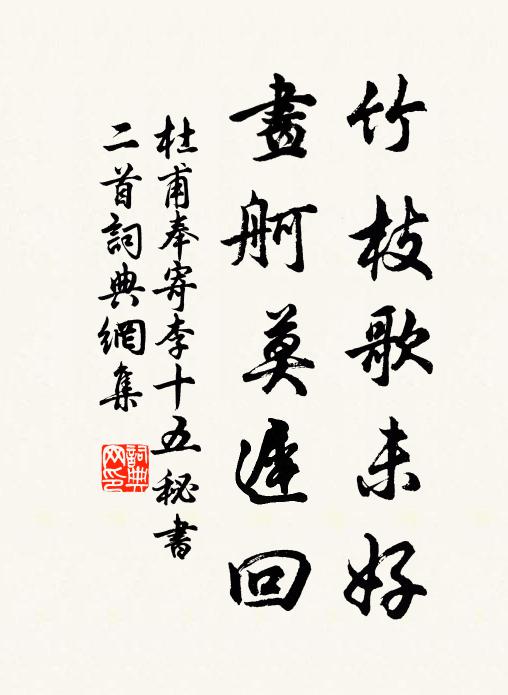 竹枝歌未好
畫舸莫遲回
杜甫奉寄李十五秘書
二首詞典網集
詞典網印